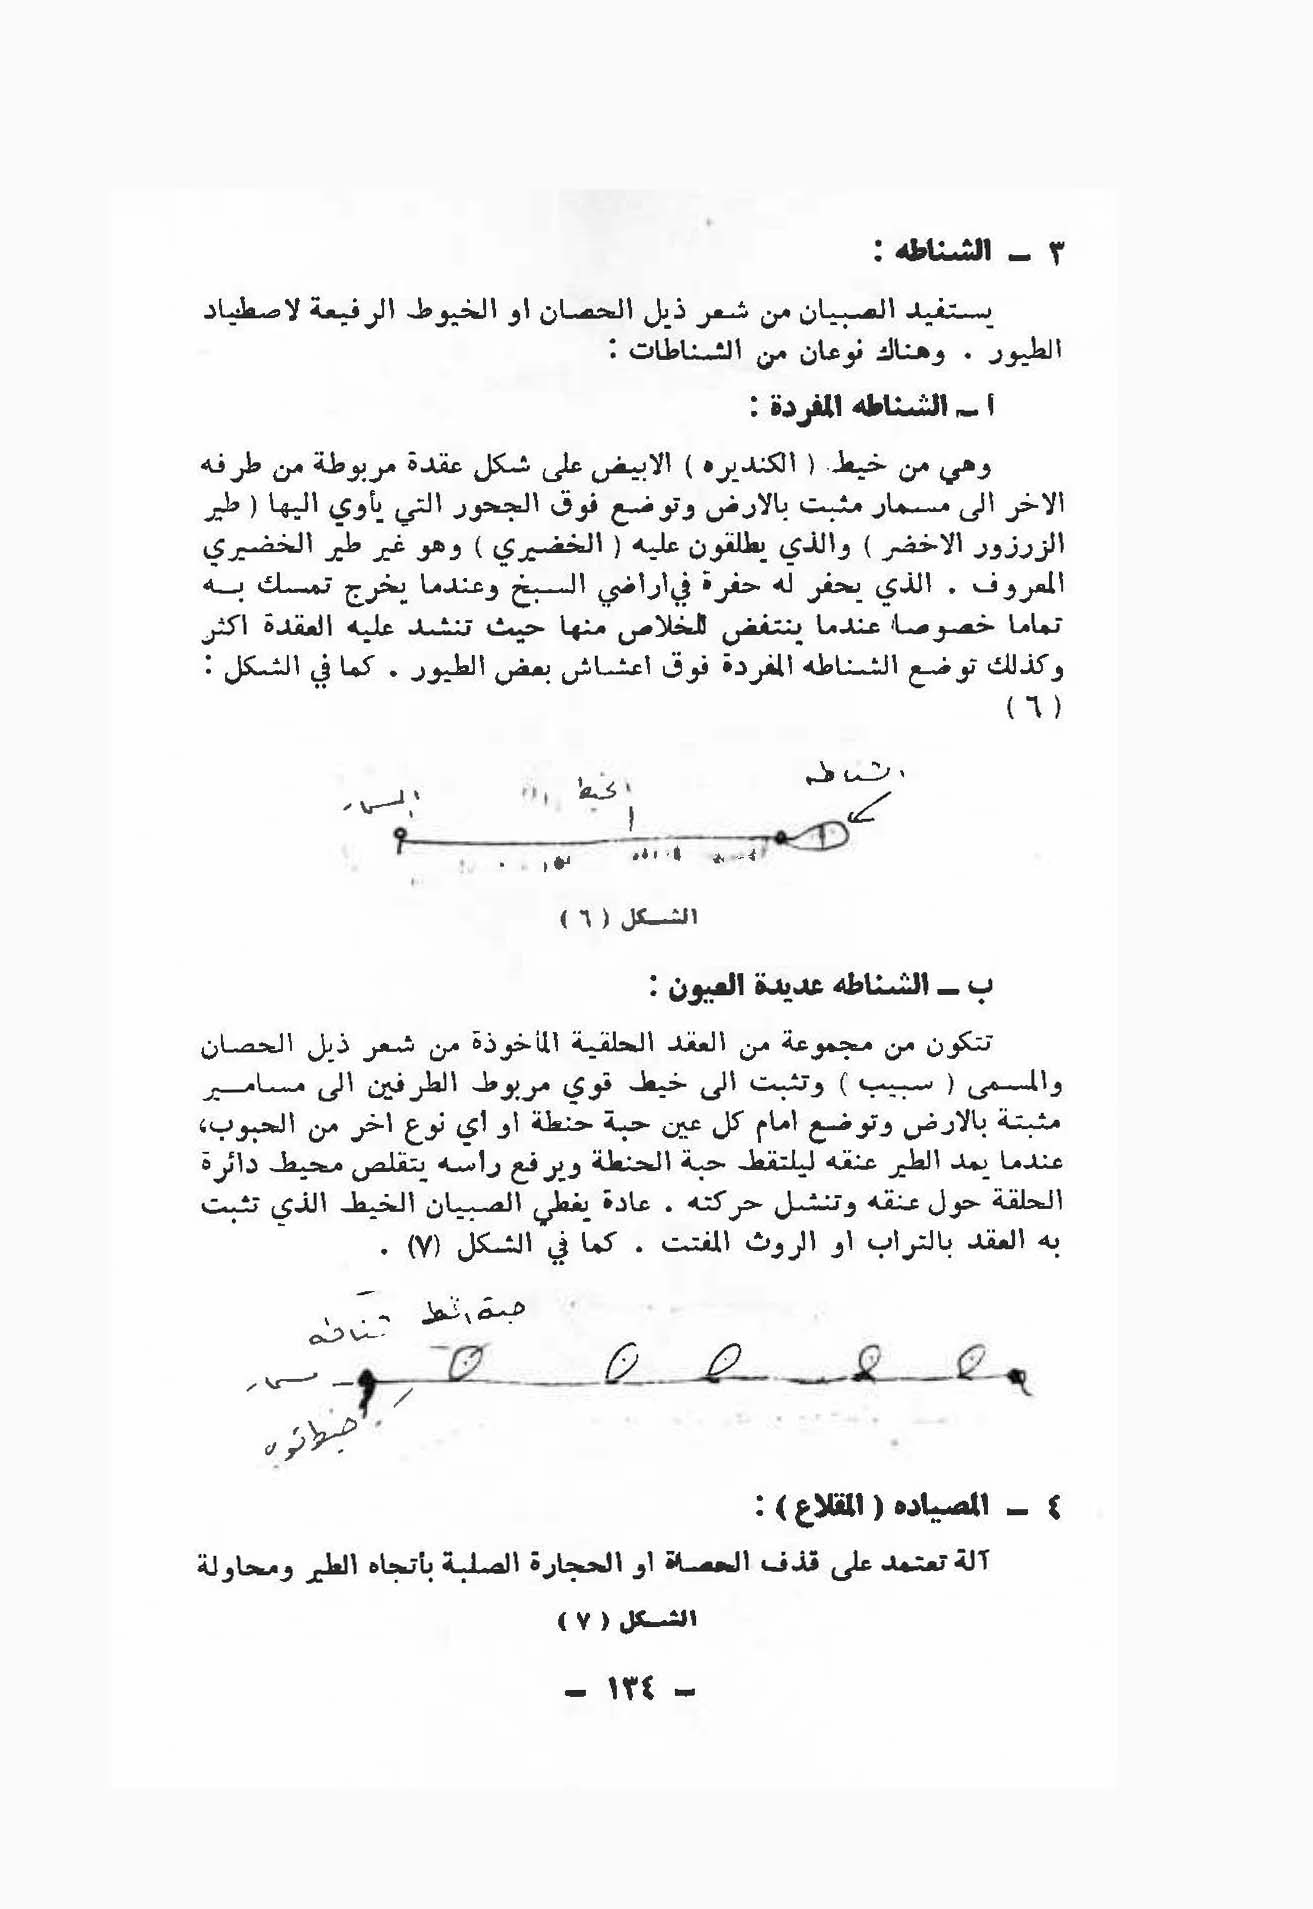 ٣ ــ الشناطه :
يستفيد الصبيان من شعر ذيل الحصان او الخيوط الرفيعة لاصطياد
الطيور . وهناك نوعان من الشناطات :
أ ــ الشناطه المفردة :
وهي من خيط ( الكنديره ) الابيض على شكل عقدة مربوطة من طرفه
الاخر الى مسمار مثبت بالارض وتوضع فوق الجحور التي يأوي اليها ( طير
الزرزور الاخضر ) والذي يطلقون عليه ( الخضيري ) وهو غير طير الخضيري
المعروف . الذي يحفر له حفرة في اراضي السبخ وعندما يخرج تمسك به
تماما خصوصا عندما ينتفض للخلاص منها حيث تنشد عليه العقدة اكثر
وكذلك توضع الشناطه المفردة فوق اعشاش بعض الطيور . كما في الشكل :
( ٦ )
الشناطه
الخيط
المسمار
الشكل ( ٦ )
ب ــ الشناطه عديدة العيون :
تتكون من مجموعة من العقد الحلقية المأخوذة من شعر ذيل الحصان
والمسمى ( سبيب ) وتثبت الى خيط قوي مربوط الطرفين الى مسامير
مثبتة بالارض وتوضع امام كل عين حبة حنطة او أي نوع اخر من الحبوب،
عندما يمد الطير عنقه ليلتقط حبة الحنطة ويرفع رأسه يتقلص محيط دائرة
الحلقة حول عنقه وتنشل حركته . عادة يغطي الصبيان الخيط الذي تثبت
به العقد بالتراب او الروث المفتت . كما في الشكل (٧) .
حبة
شناطه
مسمار
خيط
٤ ــ المصياده ( المقلاع ) :
آلة تعتمد على قذف الحصاة او الحجارة الصلبة بأتجاه الطير ومحاولة
الشكل ( ٧ )
– ١٣٤ –